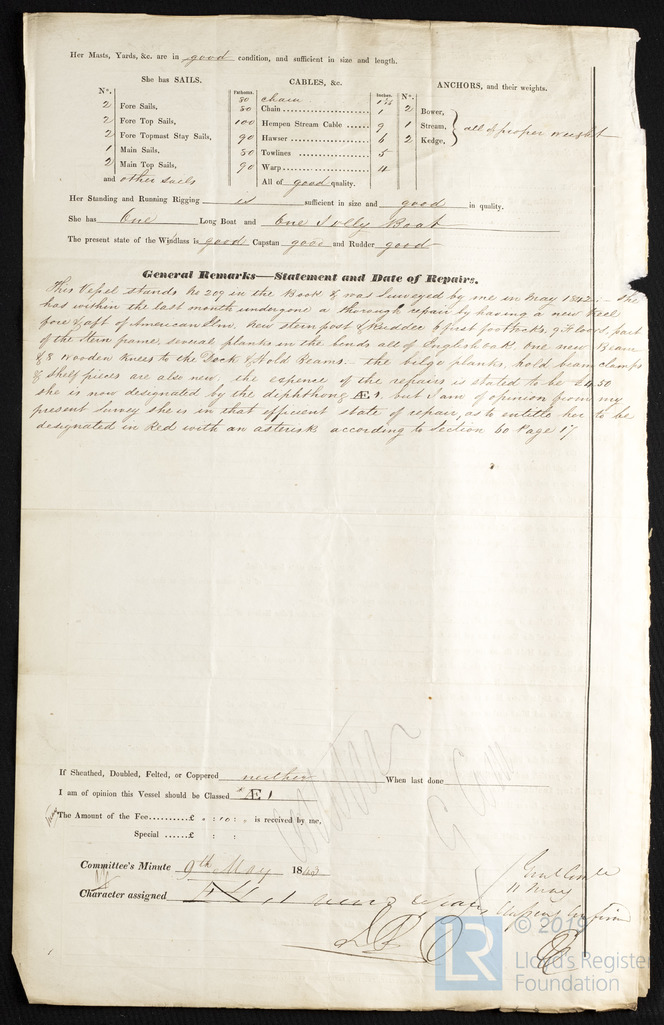 Her Masts, Yards, &c. are in good condition, and sufficient in size and length.
She has SAILS.
CABLES, &c.
ANCHORS, and their weights.
N°.
Fathoms.
Inches.
N°.
2 Fore Sails,
2 Fore Top Sails,
2 Fore Topmast Stay Sails,
1 Main Sails,
2 Main Top Sails,
and other sails
80 chain
80 Chain 1
100 Hempen Stream Cable 9
90 Hawser 6
80 Towlines 5
90 Warp 4
All of good quality.
2 Bower,
1 Stream,
2 Kedge,
all of proper weight
Her Standing and Running Rigging is sufficient in size and good in quality.
She has One Long Boat and One Jolly Boat
The present state of the Windlass is good Capstan good and Rudder good
General Remarks—Statement and Date of Repairs.
This Vessel stands No 209 in the Book & was Surveyed by me in May 1842 :- She
has within the last month undergone a thorough repair by having a new Keel
fore & aft of American Elm, New sternpost & Rudder 6 first foothooks, 9 floors, part
of the Stern frame, several planks in the bends all of English oak, One new Beam
& 8 Wooden Knees to the Deck & Hold Beams. - the bilge planks, hold beam clamps
& shelf pieces are also new, the expence of the repairs is stated to be £450
she is now designated by the diphthong Æ 1, but I am of opinion from my
present Survey she is in that efficient state of repair, as to entitle her to be
designated in Red with an asterisk according to Section 60 Page 17
If Sheathed, Doubled, Felted, or Coppered neither When last done
I am of opinion this Vessel should be Classed * Æ 1
The Amount of the Fee......£ : 10 : is received by me,
Special ......£ : :
Committee's Minute 9th May 184
Character assigned
© 2019
LR
Lloyd's Register
Foundation